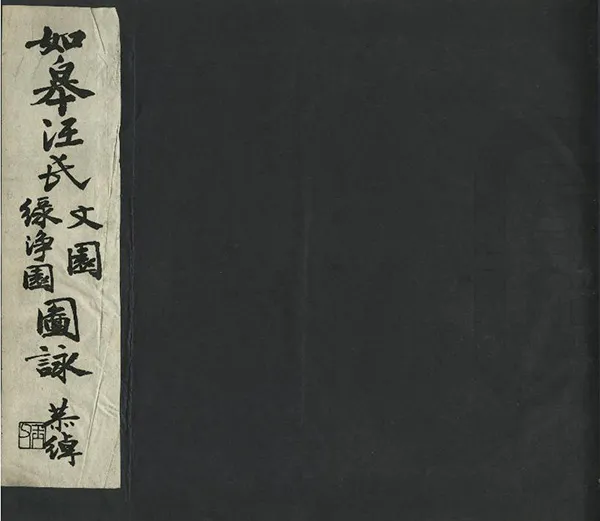 如皋汪氏
文園
綠淨園
圖詠
恭綽